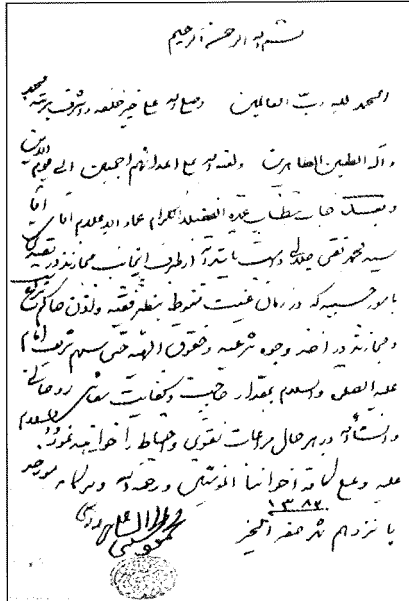 بسم الله الرحمن الرحیم
الحمد لله رب العالمین وصلی الله علی خیر خلقه و اشرف بریته محمد
وآله الطیبین الطاهرین ولعنة الله علی اعدائهم اجمعین الی یوم الدین
وبعد جناب مستطاب عمدة الفضلاء الکرام عماد الاعلام آقای
سید محمد تقی دامت تأییداته از طرف اینجانب مجازند در تصدی
بامور حسبیه که در زمان غیبت منوط بنظر فقیه و اذن حاکم شرع
ومجازند در اخذ وجوه شرعیه وحقوق الهیه حتی سهم شریف امام
علیه الصلوة والسلام بمقدار حاجت و کفایت معاش
وانشاءالله در هر حال مراعات تقوی واحتیاط را خواهند نمود والسلام
علیه وعلی کافة اخواننا المؤمنین ورحمة الله وبرکاته
پانزدهم شهر صفر الخیر ۱۳۸۷